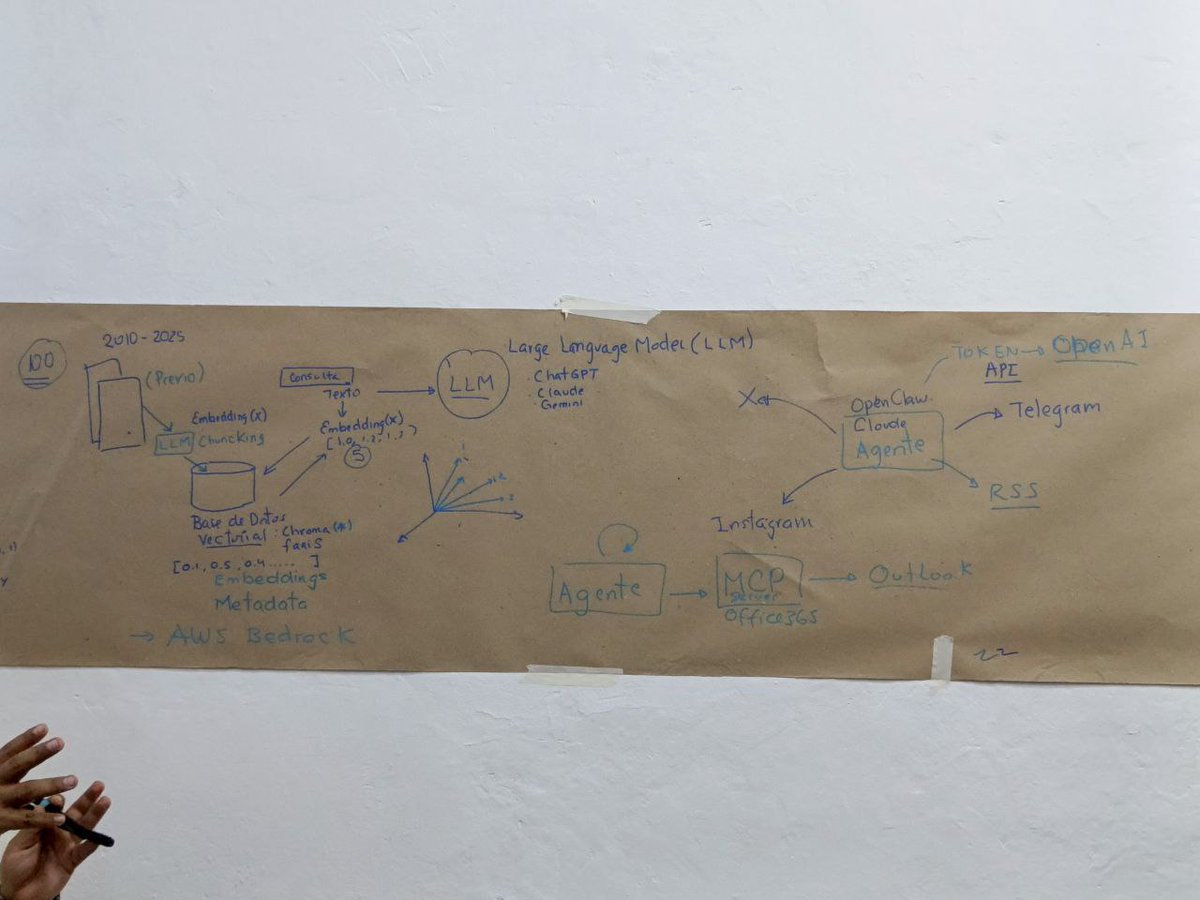 100
2010-2025
(Previo)
Embedding(x)
LLM Chuncking
Base de Datos
Vectorial : Chroma (*)
faniS
[0.1, 0.5, 0.4 ..... ]
Embeddings
Metadata
→ AWS Bedrock
Consulta
Texto
Embedding(x)
5
LLM
Large Language Model (LLM)
· ChatGPT
· Claude
· Gemini
X
OpenClaw
Claude
Agente
TOKEN → OpenAI
API
Telegram
RSS
Instagram
Agente
MCP
server
Office365
Outlook